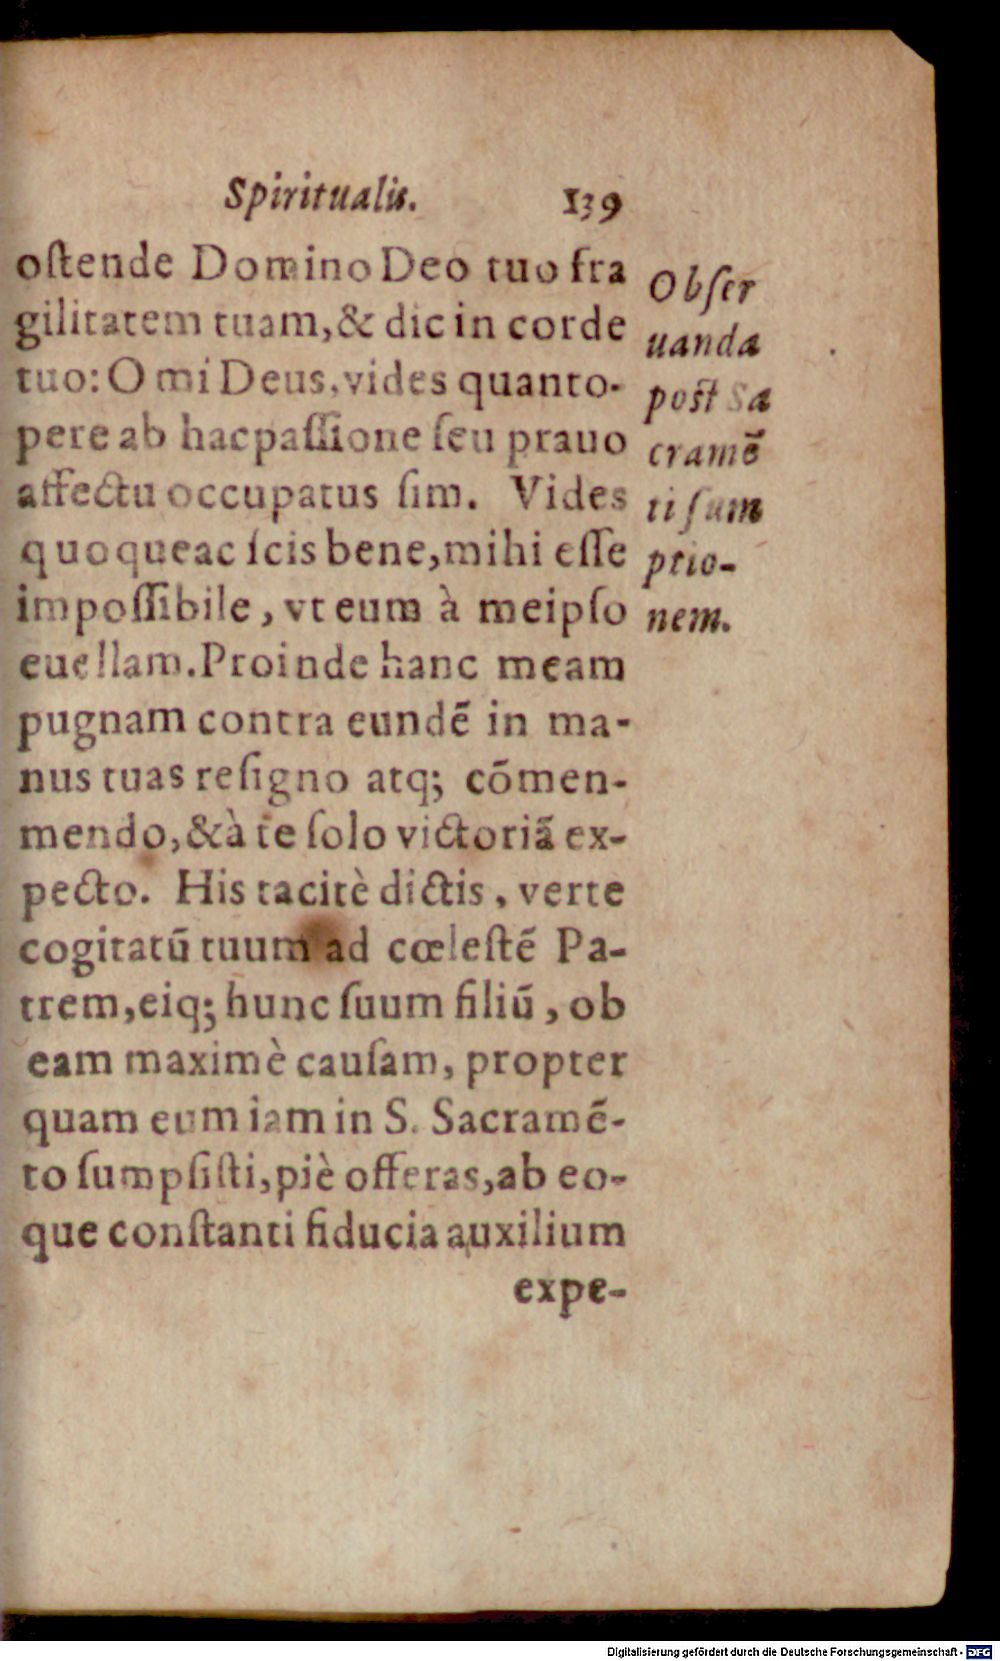 Spiritualis. 139
oſtende Domino Deo tuo fra
gilitatem tuam, & dic in corde
tuo: O mi Deus, vides quanto-
pere ab hac paſſione ſeu prauo
affectu occupatus ſim. Vides
quoque ac ſcis bene, mihi eſſe
impoſſibile, vt eum à meipſo
euellam. Proinde hanc meam
pugnam contra eundē in ma-
nus tuas reſigno atq; cōmen-
mendo, & à te ſolo victoriā ex-
pecto. His tacitè dictis, verte
cogitatū tuum ad cœleſtē Pa-
trem, eiq; hunc ſuum filiū, ob
eam maximè cauſam, propter
quam eum iam in S. Sacramē-
to ſumpſiſti, piè offeras, ab eo-
que conſtanti fiducia auxilium
expe-
Obſer
uanda
poſt Sa
cramē
ti ſum
ptio-
nem.
Digitalisierung gefördert durch die Deutsche Forschungsgemeinschaft - DFG